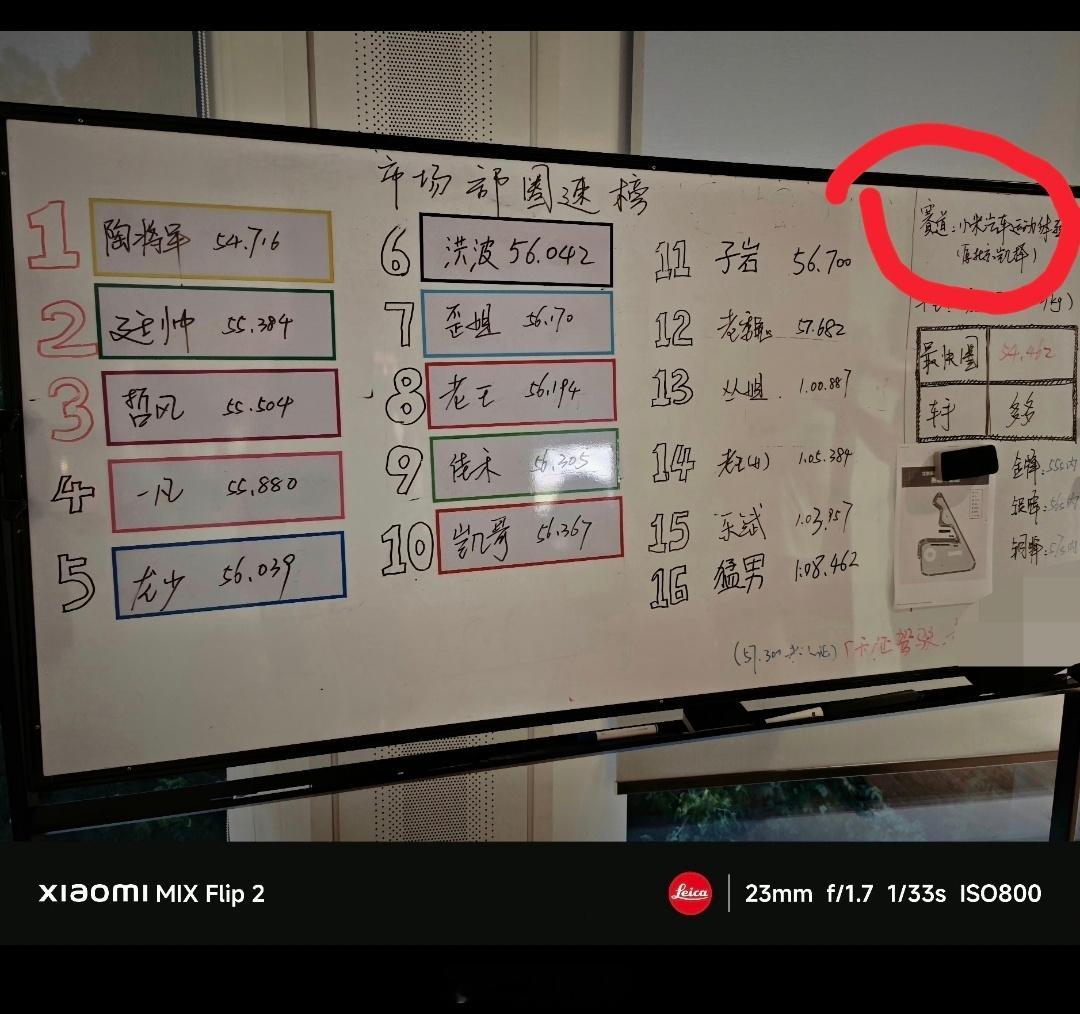 市场部圈速榜
1 陶将军 54.716
2 廷帅 55.384
3 哲风 55.504
4 一凡 55.880
5 龙少 56.039
6 洪波 56.042
7 歪姐 56.170
8 老王 56.194
9 佳禾 56.305
10 凯哥 56.367
11 子岩 56.700
12 57.682
13 从姐 1.00.887
14 1:05.384
15 东斌 1:03.957
16 猛男 1:08.462
赛道:小米汽车运动
(原北京凯择)
最快圈 54.462
车手 多多
金牌:55s内
银牌:56s内
铜牌:57s内
(57.300
xiaomi MIX Flip 2
Leica
23mm f/1.7 1/33s ISO800